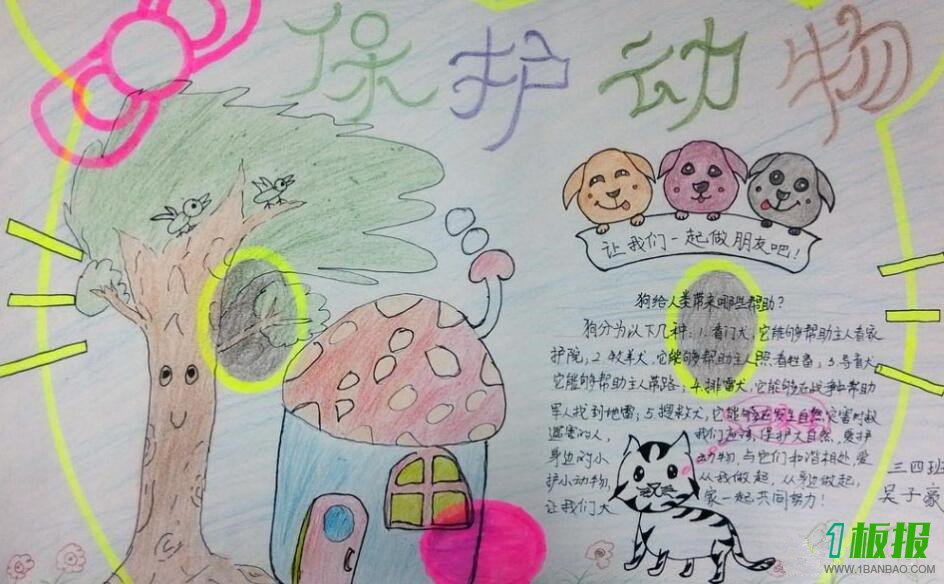 保护动物
让我们一起做朋友吧！
狗给人类带来哪些帮助？
狗分为以下几种：1.看门犬，它能够帮助主人看家
护院；2.牧羊犬，它能够帮助主人照看牲畜；3.导盲犬，
它能够帮助主人带路；4.排雷犬，它能够在战争时帮助
军人找到地雷；5.搜救犬，它能够在发生自然灾害时救
遇害的人，我们应该保护大自然，爱护
身边的小动物，与它们和谐相处，爱
护小动物，从我做起，从身边做起，
让我们大家一起共同努力！
三四班
吴子豪
1板报
WWW.1BANBAO.COM